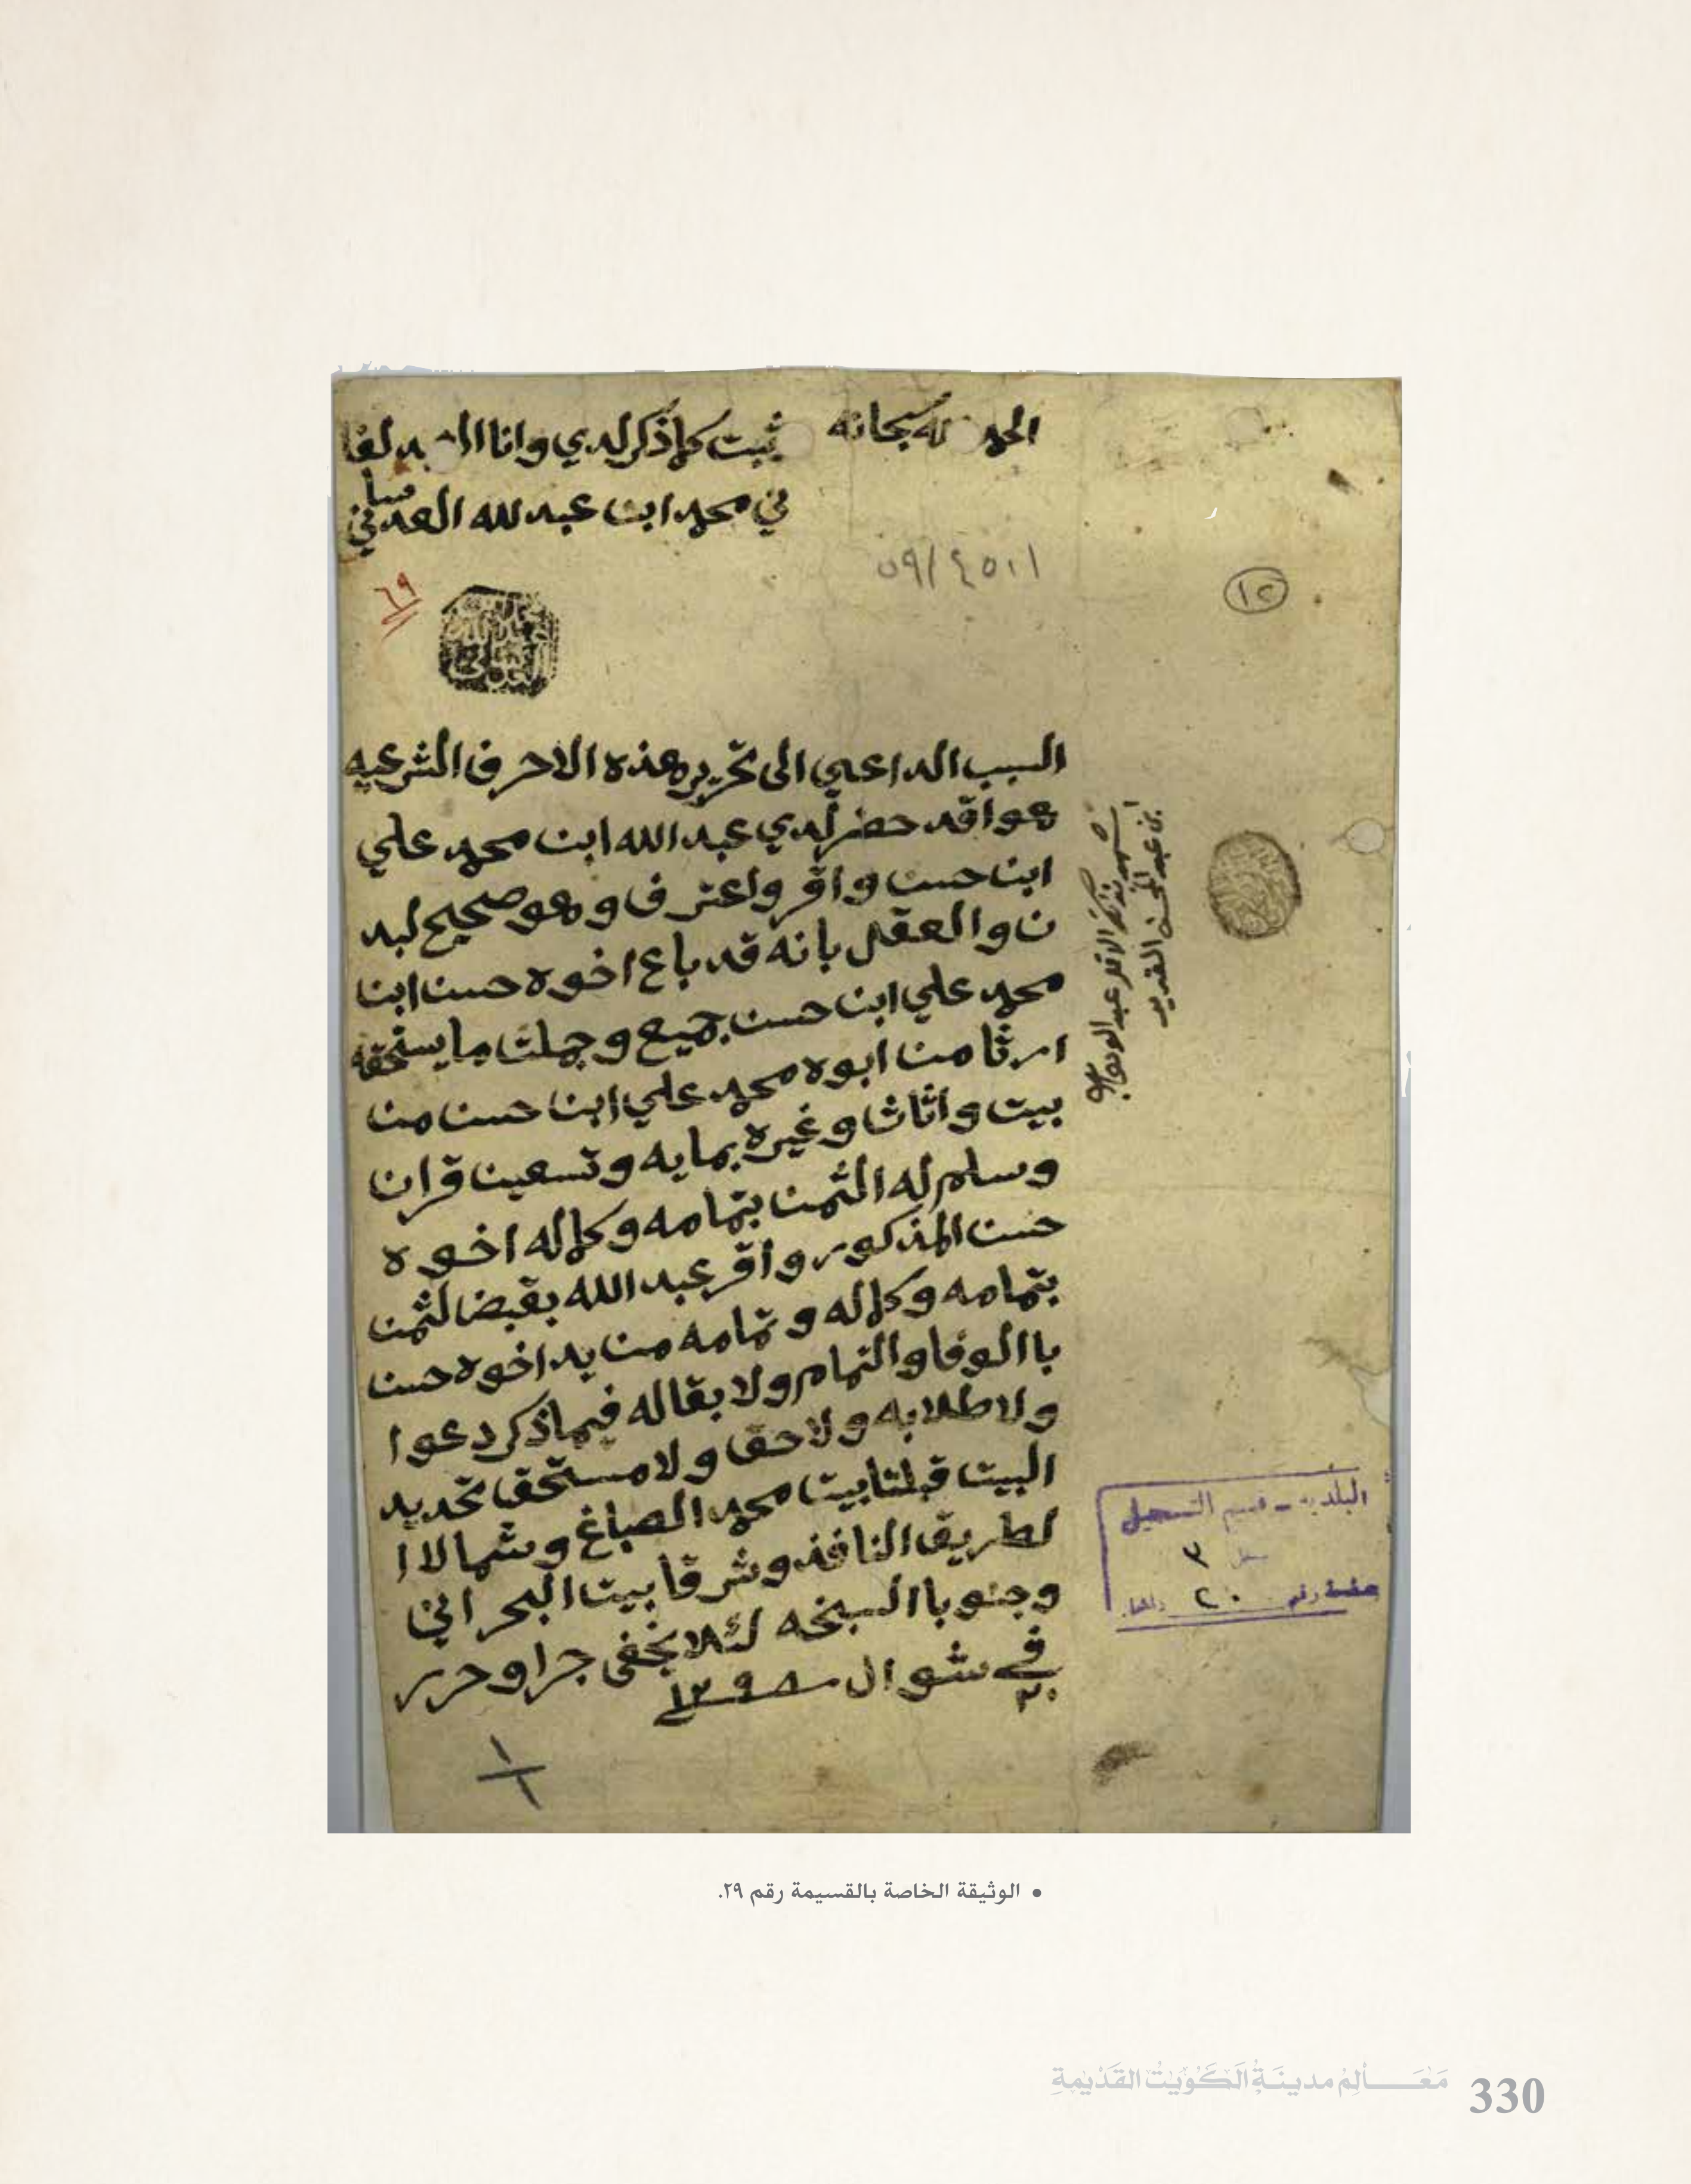 الحمد لله سبحانه
ثبت كما ذكر لدي وانا العبد لفا
ني محمد ابن عبد لله العدساني
٤٥٠١/٥٩
٦٩
١٢
السبب الداعي الى تحرير هذه الاحرف الشرعيه
هو اقد حضر لدي عبد الله ابن محمد علي
ابن حسن واقر واعترف وهو صحيح لبد
ن والعقل بانه قد باع اخوه حسن ابن
محمد علي ابن حسن جميع وجملت ما يستحقه
ارثا من ابوه محمد علي ابن حسن من
بيت واثاث وغيره بمايه وتسعين قران
وسلم له الثمن بتمامه وكماله اخوه
حسن المذكور واقر عبد الله بقبض لثمن
بتمامه وكماله وتمامه من يد اخوه حسن
باالوفا والتمام ولا بقاله فيما ذكر دعوا
ولا طلابه ولا حق ولا مستحق تحديد
البيت قبلتا بيت محمد الصباغ وشمالا ا
لطريق النافذ وشرقا بيت البحراني
وجنوبا السبخه لئلا يخفى جرا وحرر
في ٢٠ شوال ١٢٩٨
شهد بذلك الاقل عبد الوهاب
ابن عبد المحسن الغرير
البلدية - قسم التسجيل
سجل ٣
صفحة رقم ٢٠
• الوثيقة الخاصة بالقسيمة رقم ٢٩.
مَعَالِمُ مدينَةِ الكُوَيتْ القَدْيمةِ
330